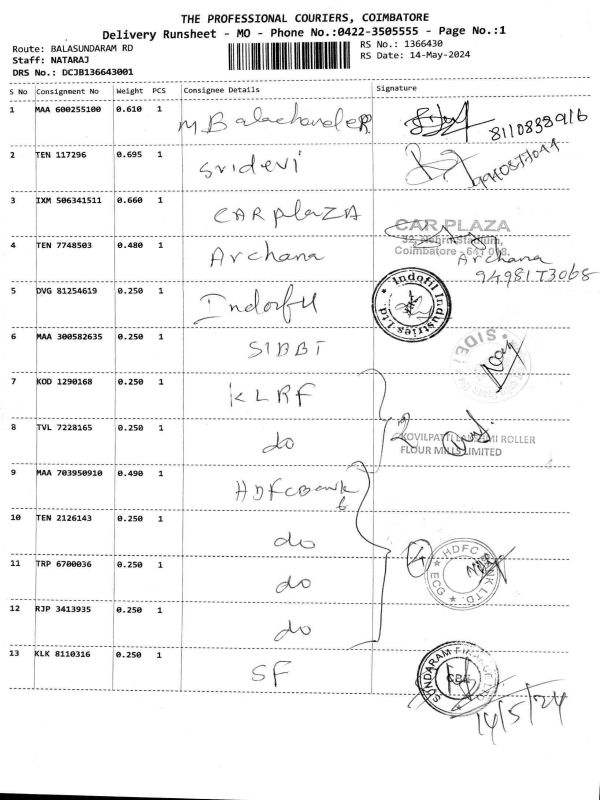 THE PROFESSIONAL COURIERS, COIMBATORE
Delivery Runsheet - MO - Phone No.:0422-3505555 - Page No.:1
Route: BALASUNDARAM RD
RS No.: 1366430
Staff: NATARAJ
RS Date: 14-May-2024
DRS No.: DCJB136643001
S No Consignment No Weight PCS Consignee Details Signature
1 MAA 600255100 0.610 1 M Balachander 8110838916
2 TEN 117296 0.695 1 Sridevi
3 IXM 506341511 0.660 1 CARPlaZA
CAR PLAZA
32, Nehru Stadium,
Coimbatore - 641 018.
4 TEN 7748503 0.480 1 Archana Archana
9498173068
5 DVG 81254619 0.250 1 Indofil Indofil Industries Ltd
6 MAA 300582635 0.250 1 SIBBI
7 KOD 1290168 0.250 1 KLRF
8 TVL 7228165 0.250 1 do 2
KOVILPATTI LAKSHMI ROLLER
FLOUR MILLS LIMITED
9 MAA 703950910 0.490 1 HDFCBank
10 TEN 2126143 0.250 1 do
4 HDFC BANK LTD.
11 TRP 6700036 0.250 1 do
12 RJP 3413935 0.250 1 do
13 KLK 8110316 0.250 1 SF
SUNDARAM FINANCE LTD
CBE
14/5/24